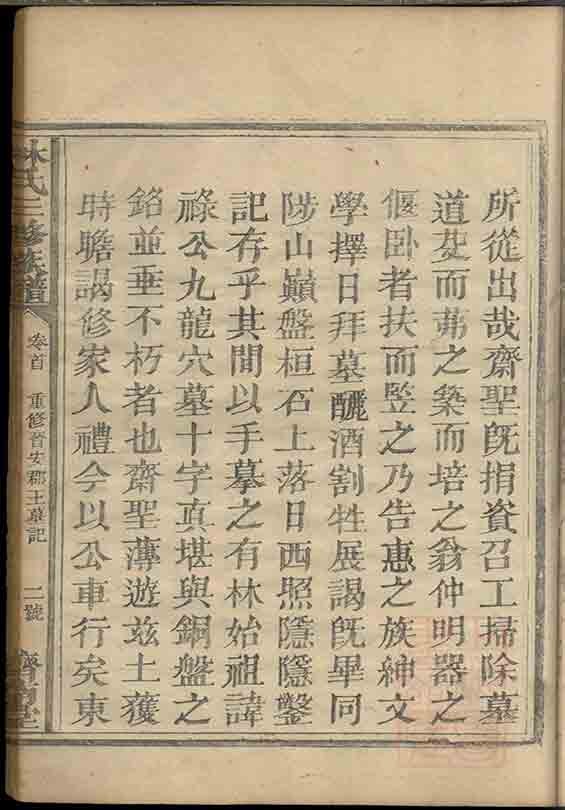 所從出哉齋聖旣捐資召工掃除墓
道茇而茀之築而培之翁仲明器之
偃卧者扶而竪之乃告惠之族紳文
學擇日拜墓釃酒割牲展謁旣畢同
陟山巔盤桓石上落日西照隱隱鑿
記存乎其間以手摹之有林始祖諱
祿公九龍穴墓十字真堪與銅盤之
銘並垂不朽者也齋聖薄遊玆土獲
時瞻謁修家人禮今以公車行矣東
林氏二修族譜
卷首 重修晉安郡王墓記
二號